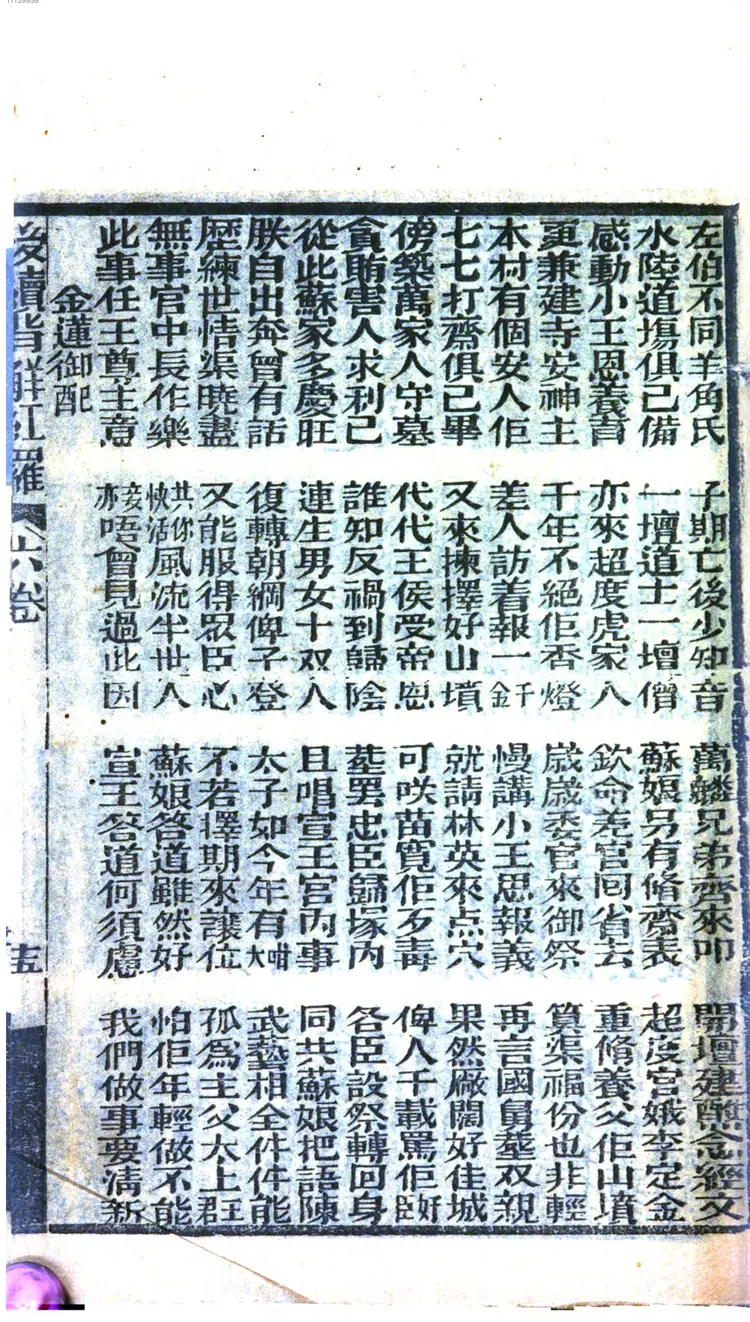 11129938
左伯不同羊角氏 子期亡後少知音 萬鱗兄弟齊來叩 開壇建醮念經文
水陸道塲俱已備 一壇道士一壇僧 蘇娘另有脩齋表 超度宮娥李定金
感動小王恩養育 亦來超度虎家人 欽命差官回省去 重脩養父佢山墳
更兼建寺安神主 千年不絕佢香燈 歲歲委官來御祭 算渠福份也非輕
本村有個安人佢 差人訪着報一千金 慢講小王思報義 再言國舅塟双親
七七打齋俱已畢 又來揀擇好山墳 就請林英來点穴 果然厰闊好佳城
傍築萬家人守墓 代代王侯受帝恩 可咲苗寬佢歹毒 俾人千載罵佢奸臣
貪賄害人求利己 誰知反禍到歸陰 塟罢忠臣歸塚內 各臣設祭轉回身
從此蘇家多慶旺 連生男女十双人 且唱宣王宮內事 同共蘇娘把語陳
朕白出奔曾有話 復轉朝綱俾子登 太子如今年有咁大 武藝相全件件能
歷練世情渠曉盡 又能服得眾臣心 不若擇期來讓位 孤為主父太上君
無事宮中長作樂 共你快活風流半世人 蘇娘答道雖然好 怕佢年輕做不能
此事任王尊主意 接亦唔曾見過此因 宣王答道何須慮 我們做事要清新
金蓮御配
後續背解紅羅 六卷 十五